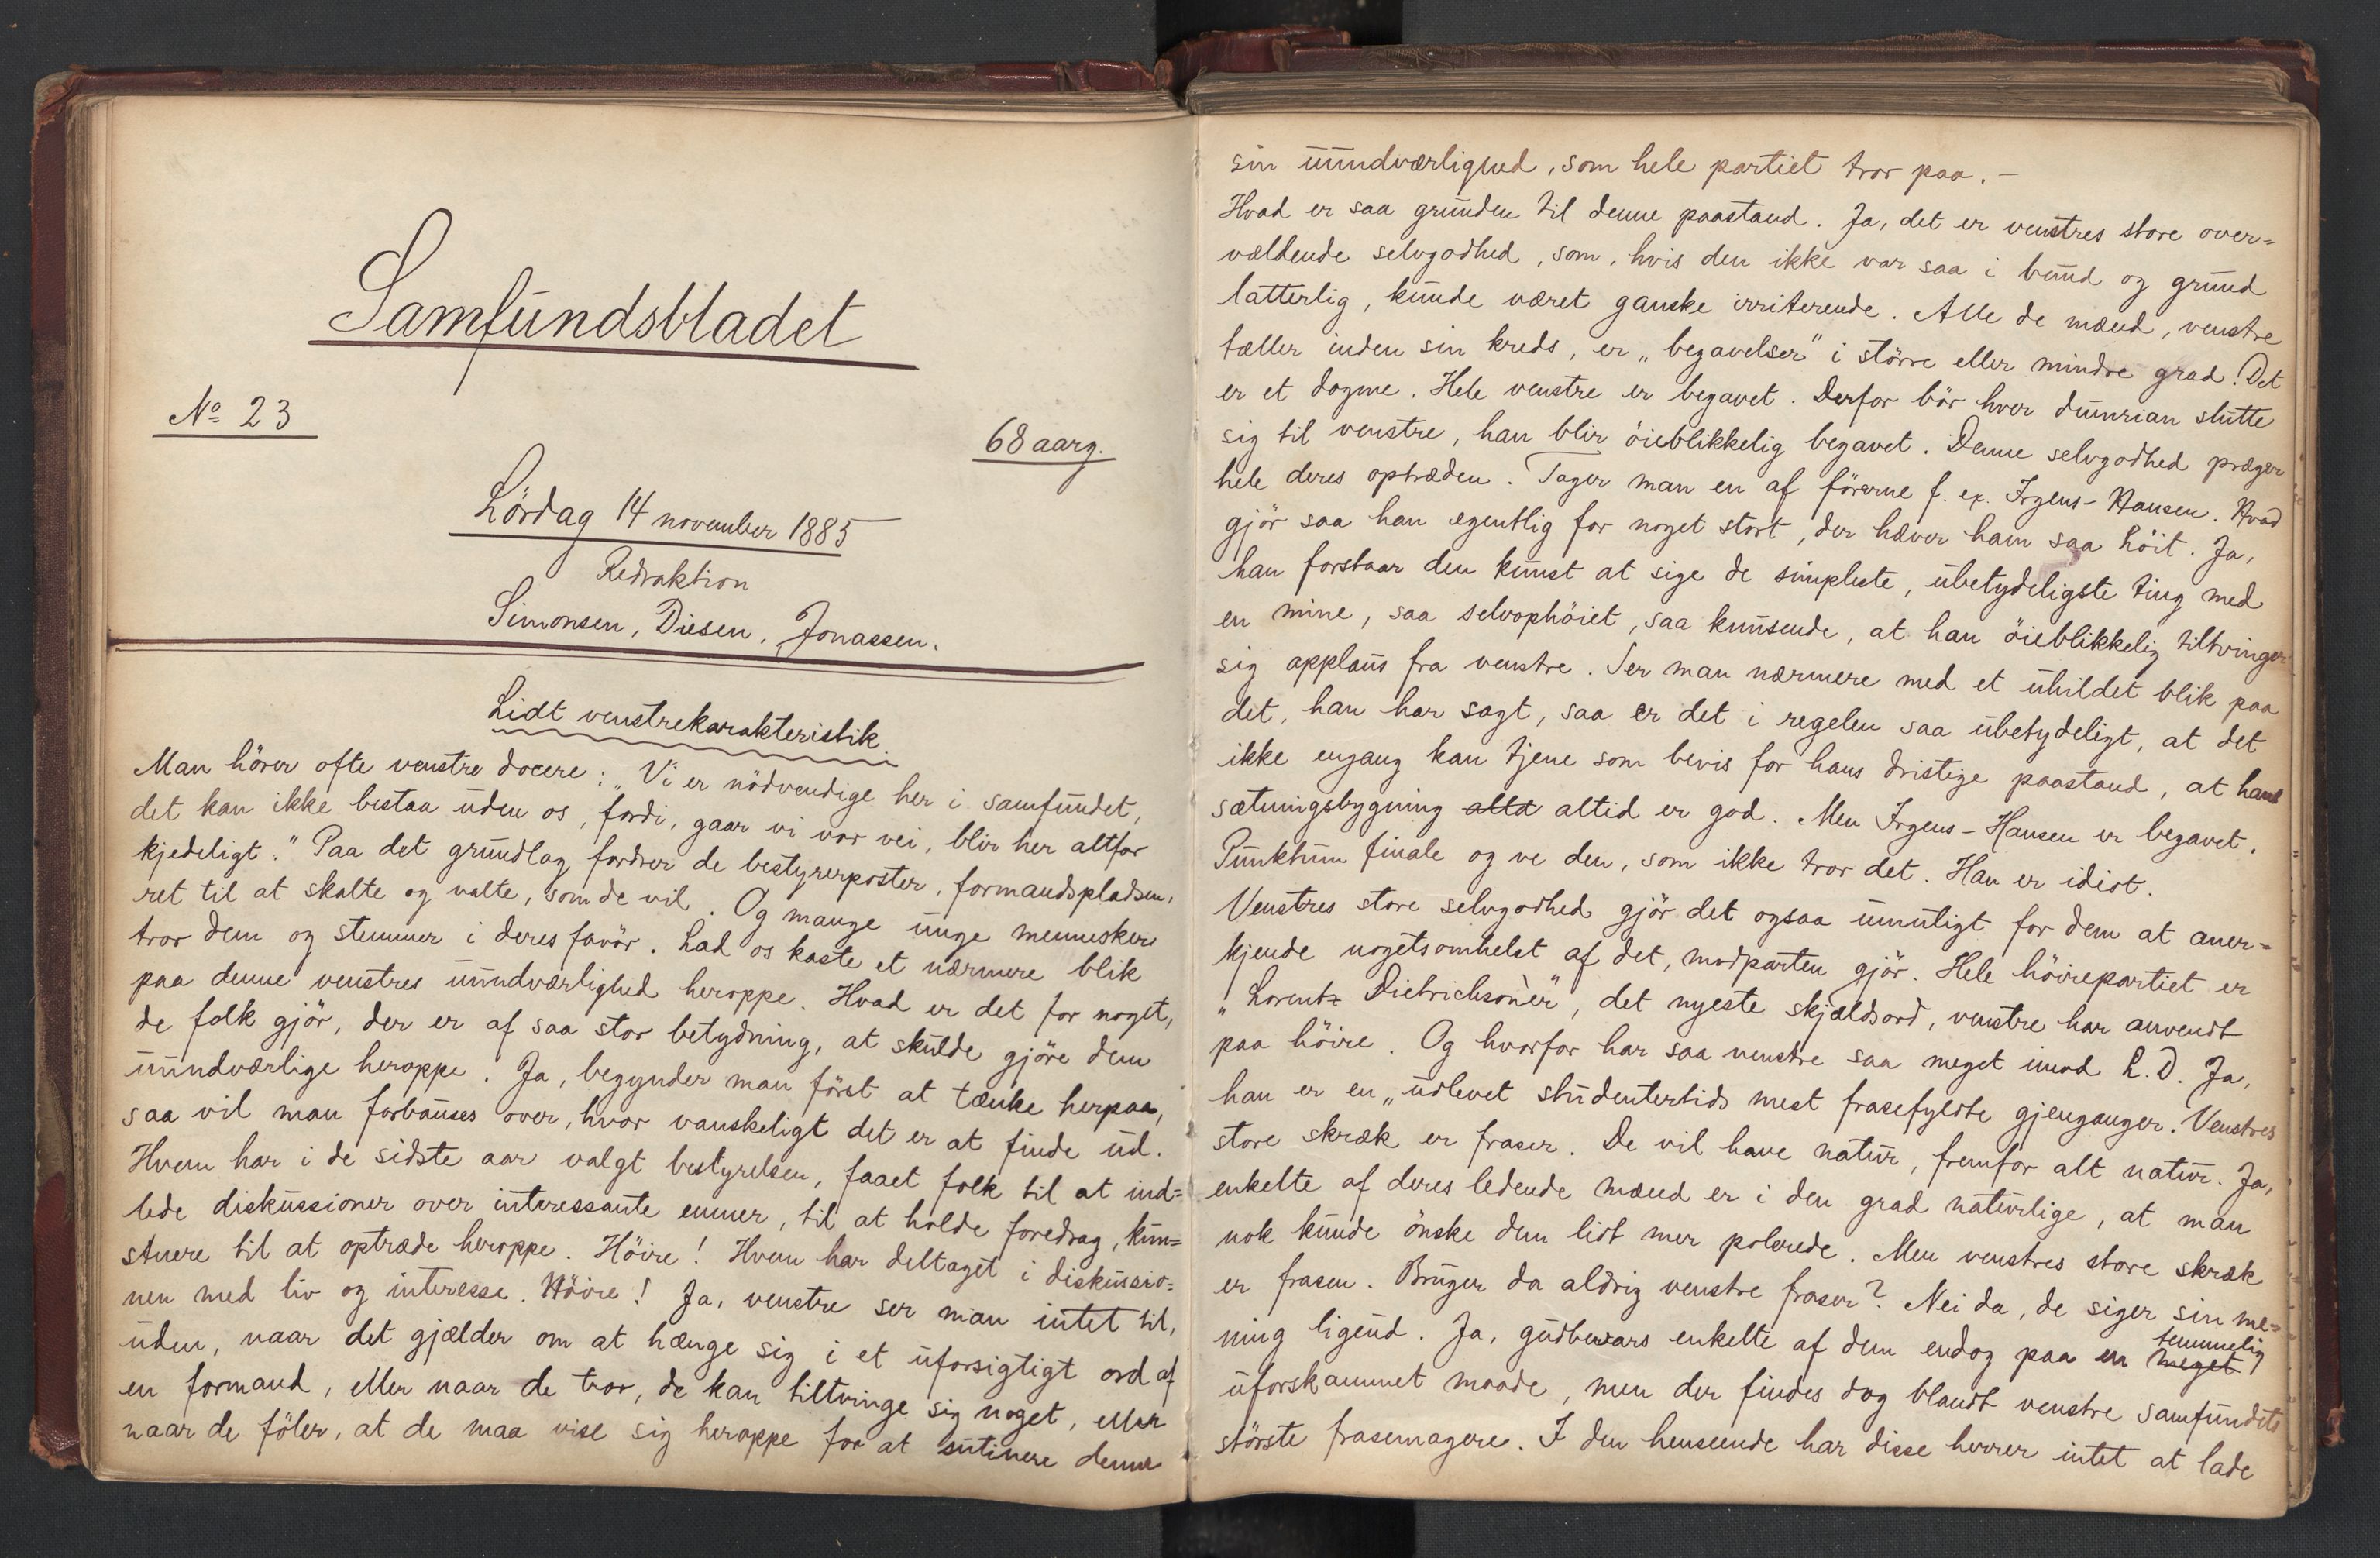 Samfundsbladet
No 23
68 aarg.
Lördag 14 november 1885
Redaktion
Simonsen, Diesen, Jonassen.
Lidt venstrekarakteristik.
Man hörer ofte venstre docere: "Vi er nödvendige her i samfundet,
det kan ikke bestaa uden os, fordi, gaar vi vor vei, blir her altfor
kjedeligt." Paa det grundlag fordrer de bestyrerposter, formandspladsen,
ret til at skalte og valte, som de vil. Og mange unge mennesker
tror dem og stemmer i deres favör. Lad os kaste et nærmere blik
paa denne venstres uundværlighed heroppe. Hvad er det for noget,
de folk gjör, der er af saa stor betydning, at skulde gjöre dem
uundværlige heroppe? Ja, begynder man först at tænke herpaa,
saa vil man forbauses over, hvor vanskeligt det er at finde ud.
Hvem har i de sidste aar valgt bestyrelsen, faaet folk til at ind=
lede diskussioner over interessante emner, til at holde foredrag, kun=
stnere til at optræde heroppe. Höire! Hvem har deltaget i diskussio=
nen med liv og interesse. Höire! Ja, venstre ser man intet til,
uden, naar det gjælder om at hænge sig i et uforsigtigt ord af
en formand, eller naar de tror, de kan tiltvinge sig noget, eller
naar de föler, at de maa vise sig heroppe for at sutinere denne
sin uundværlighed, som hele partiet tror paa. –
Hvad er saa grunden til denne paastand. Ja, det er venstres store over=
vældende selvgodhed, som, hvis den ikke var saa i bund og grund
latterlig, kunde været ganske irriterende. Alle de mænd, venstre
tæller inden sin kreds, er „begavelser" i större eller mindre grad. Det
er et dogme. Hele venstre er begavet. Derfor bör hver dumrian slutte
sig til venstre, han blir öieblikkelig begavet. Denne selvgodhed præger
hele deres optræden. Tager man en af förerne f. ex. Irgens-Hansen. Hvad
gjör saa han egentlig for noget stort, der hæver ham saa höit. Ja,
han forstaar den kunst at sige de simpleste, ubetydeligste ting med
en mine, saa selvophöiet, saa knusende, at han öieblikkelig tiltvinger
sig applaus fra venstre. Ser man nærmere med et uhildet blik paa
det, han har sagt, saa er det i regelen saa ubetydeligt, at det
ikke engang kan tjene som bevis for hans dristige paastand, at hans
sætningsbygning altd altid er god. Men Irgens-Hansen er begavet.
Punktum finale og ve den, som ikke tror det. Han er idiot.
Venstres store selvgodhed gjör det ogsaa umuligt for dem at aner=
kjende nogetsomhelst af det, modparten gjör. Hele höirepartiet er
„Lorentz Dietrichsoner", det nyeste skjældsord, venstre har anvendt
paa höire. Og hvorfor har saa venstre saa meget imod L. D. Ja,
han er en „udlevet studentertids mest frasefyldte gjenganger. Venstres
store skræk er fraser. De vil have natur, fremfor alt natur. Ja,
enkelte af deres ledende mænd er i den grad naturlige, at man
nok kunde önske dem lidt mer polerede. Men venstres store skræk
er frasen. Bruger da aldrig venstre fraser? Nei da, de siger sin me=
ning ligeud. Ja, gudbevars enkelte af dem endog paa en meget temmelig
uforskammet maade, men der findes dog blandt venstre samfundets
störste frasemagere. I den henseende har disse herrer intet at lade